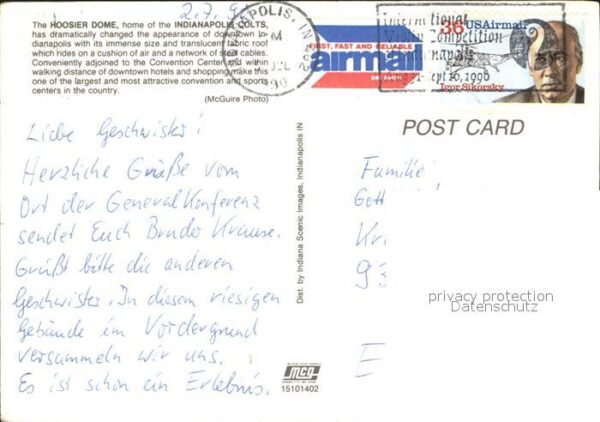 The HOOSIER DOME, home of the INDIANAPOLIS COLTS,
has dramatically changed the appearance of downtown In-
dianapolis with its immense size and translucent fabric roof
which rides on a cushion of air and a network of steel cables.
Conveniently adjoined to the Convention Center and within
walking distance of downtown hotels and shopping make this
one of the largest and most attractive convention and sports
centers in the country.
(McGuire Photo)
2.7.
Liebe Geschwister!
Herzliche Grüße vom
Ort der Generalkonferenz
sendet Euch Bruder Krause.
Grüßt bitte die anderen
Geschwister. In diesem riesigen
Gebäude im Vordergrund
versammeln wir uns.
Es ist schon ein Erlebnis.
Dist. by Indiana Scenic Images, Indianapolis IN
mcg
15101402
APOLIS, IN
JUL
FIRST, FAST AND RELIABLE
airmail
par avion
International
Violin Competition
Indianapolis
Sept 16, 1990
36 USAirmail
Igor Sikorsky
POST CARD
Familie
Gott
Kr.
93
E
privacy protection
Datenschutz